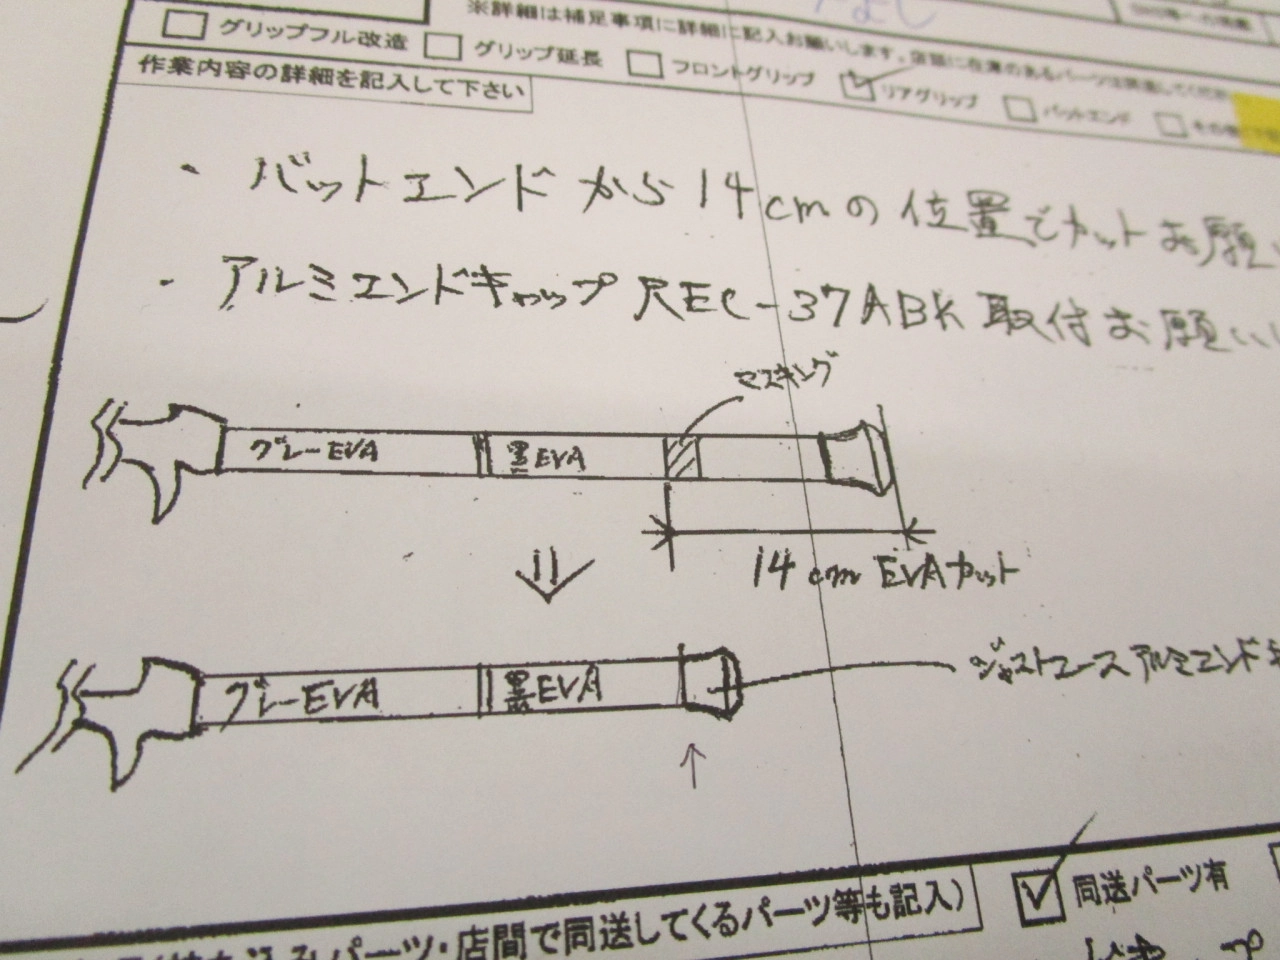 ※詳細は補足事項に詳細に記入お願いします。店舗に在庫のあるパーツは
グリップフル改造 グリップ延長 フロントグリップ リアグリップ バットエンド その他
作業内容の詳細を記入して下さい
・バットエンドから14cmの位置でカットお願い
・アルミエンドキャップ REC-37ABK 取付お願い
マスキング
グレーEVA 黒EVA
14cm EVAカット
グレーEVA 黒EVA
ジャストエースアルミエンド
同送パーツ有
パーツ・店間で同送してくるパーツ等も記入)